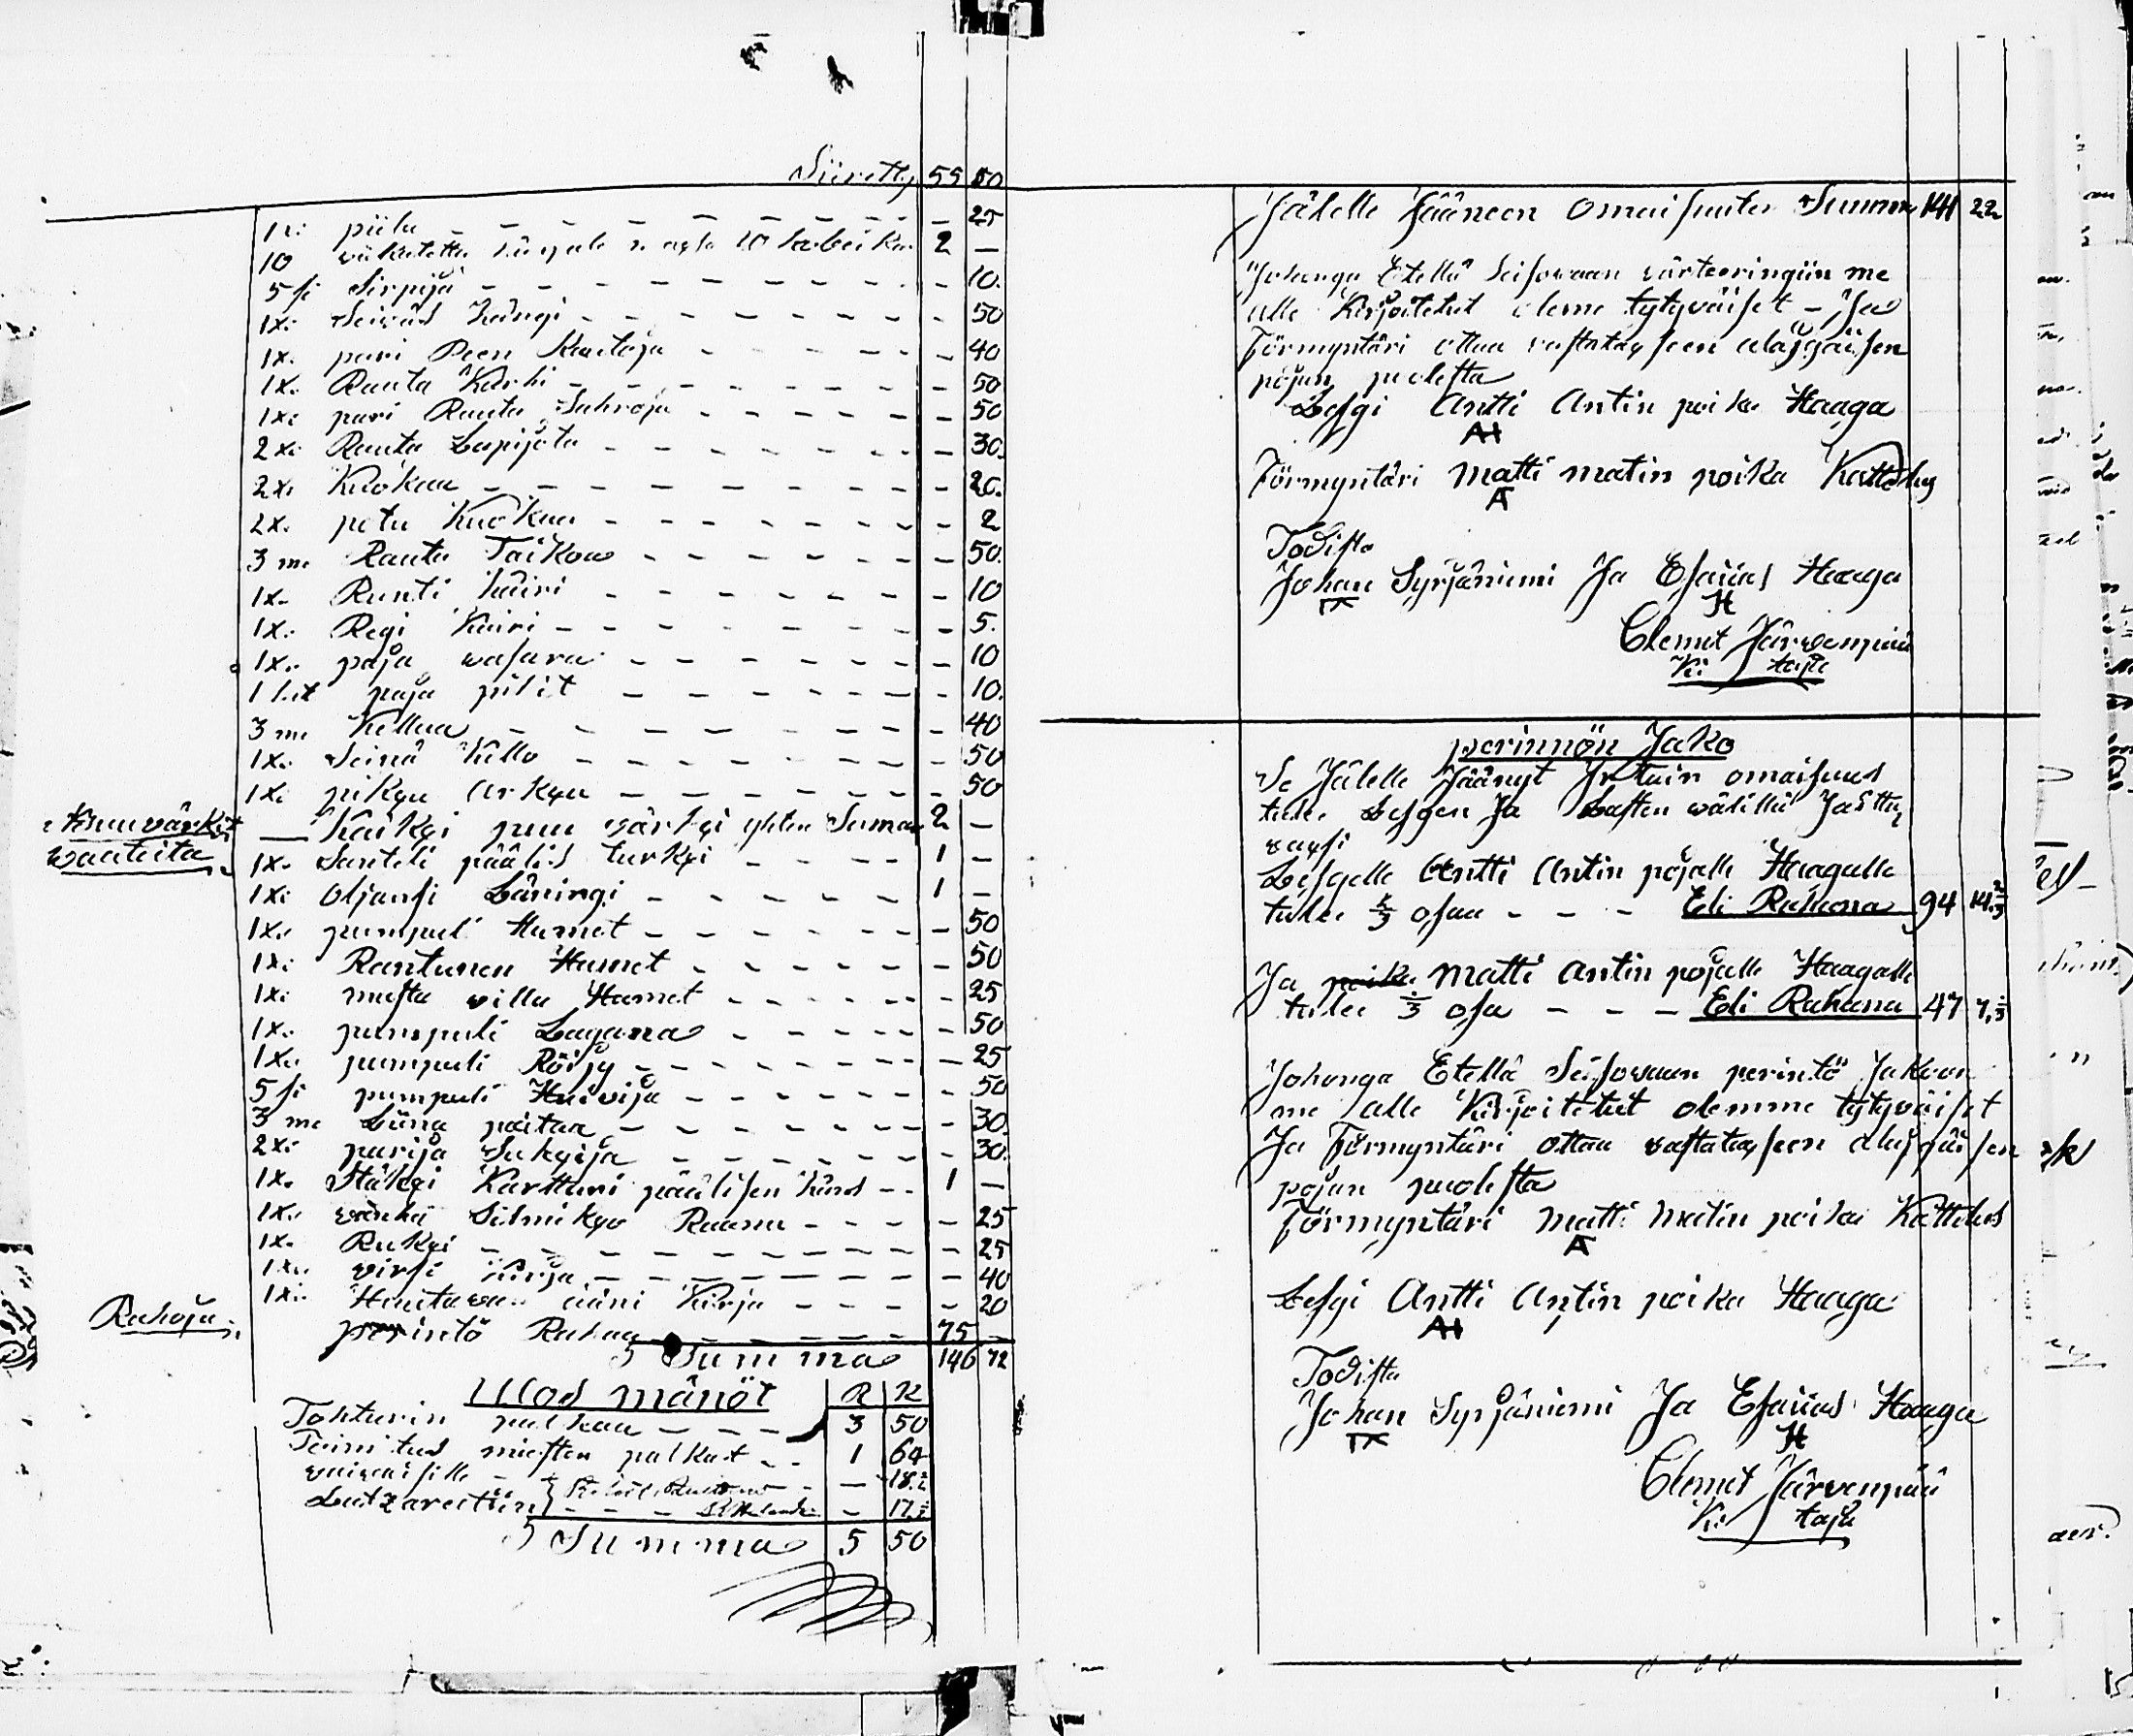 Siiretty 55 50
1xi piila - - - - - - - - - 25
10 wiikatetta 2 -
5 si Sirpijä - - - - - - - - 10.
1xi Seiwäs kängi - - - - - - - - 50
1x. pari Peen Kautoja - - - - - - 40
1x. Rauta Karhi - - - - - - - - 50
1xi pari Rauta Sahroja - - - - - - 50
2xi Rauta Lapijota - - - - - - - - 30.
2x. Kuokaa - - - - - - - - - 20.
2x. petu Kuokaa - - - - - - - - 2
3 me Rauta Taikou - - - - - - - 50.
1x. Runti kairi - - - - - - - - 10
1x. Regi Kairi - - - - - - - - 5.
1x. paja wasara - - - - - - - 10
1 kt paja pihit - - - - - - - 10.
3 me Kelkaa - - - - - - - - 40
1x. Seinä kello - - - - - - - - 50
1xi pikgu Arkgu - - - - - - - - 50
kaikgi puu värkgi yhten Suman 2 -
waateita
1x. Santeli päälis turkgi - - - - 1 -
1xi Oljansi Läningi - - - - - 1 -
1x. pumpuli Hamet - - - - - - - 50
1xi Rantunen Hamet - - - - - - 50
1xi musta villa Hamet - - - - - - 25
1x. pumpuli Lagana - - - - - - 50
1x. pumpuli Röijy - - - - - - - - 25
5 si pumpuli Huivija - - - - - - - 50
3 me Liina paitaa - - - - - - - - 30.
2xi parija Sukgija - - - - - - - 30.
1x. Stäkgi Karttuni päälisen - - 1 -
1x. wanha Silmikgo Raamu - - - - 25
1x. Rukgi - - - - - - - - - 25
1x. virsi kirja - - - - - - - - 40
1x. Hautawan ääni Kirja - - - - - 20
Rahoja
perintö Rahaa - - - - - - 75 -
Summa 146 72
Ulos mänöt R K
Tohturin palkaa - - - 3 50
Toimitus miesten palkat - - 1 64
vaivaisille - - 18.½
Latzarettiin - - - 17.½
Summa 5 50
Jälelle Jääneen omaisuuten Summa 141 22
Johonga Etellä Seisowaan värteeringiin me
alle Kirjoitetut oleme tytyväiset - Ja
Förmyntäri ottaa vastatagseen alajgäisen
pojan puolesta
Lesgi Antti Antin poika Haaga
AH
Förmyntäri Matti Matin poika Kattilus
A
Todista
Johan Syrjäniemi Ja Esaiias Haaga
IX H
Clemet Järvenpää
Ki taja
perinnön Jako
Se Jälelle Jäänyt Irtain omaisuus
tulee Lesgen Ja Lasten wälillä Jaettu
vagsi
Lesgelle Antti Antin pojalle Haagalle
tulee ⅔ osaa - - - Eli Rahassa 94 14.⅔
Ja poika Matti Antin pojalle Haagalle
tulee ⅓ osa - - - Eli Rahassa 47 7.⅓
Johonga Etellä Seisowaan perintö Jakoon
me alle Kirjoitetut olemme tytyväiset
Ja Förmyntäri ottaa vastatagseen alajgäisen
pojan puolesta
Förmyntäri Matti Matin poika Kattilus
A
Lesgi Antti Antin poika Haaga
AH
Todista
Johan Syrjäniemi Ja Esaiias Haaga
IX H
Clemet Järvenpää
Ki taja